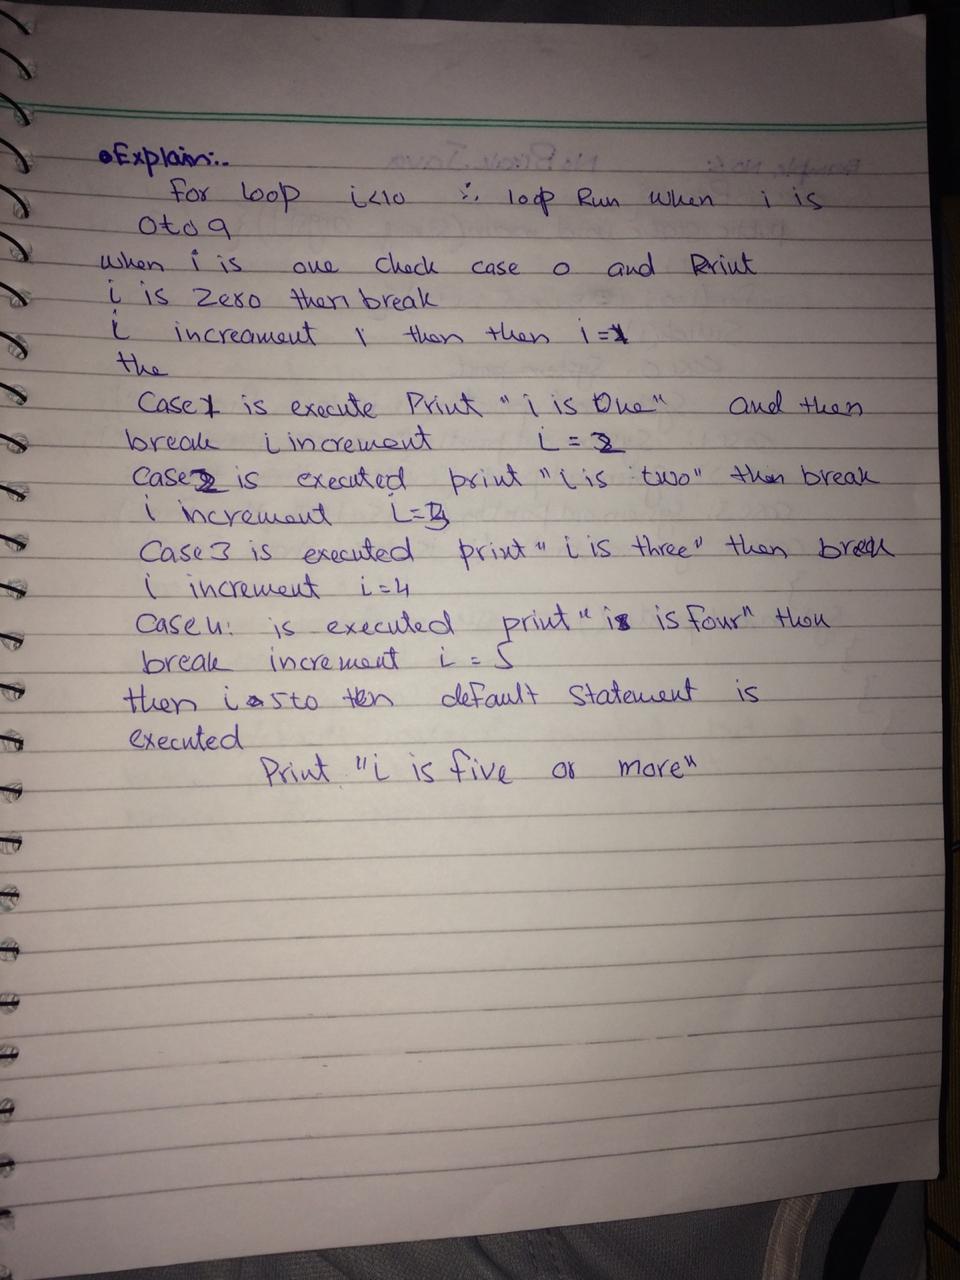 •Explain:-
For loop i<10 ∴ loop Run when i is
0 to 9
when i is one check case 0 and Print
i is zero then break
i increament 1 then then i=1
the
Case 1 is execute Print "i is One" and then
break i increment i = 2
Case 2 is executed print "i is two" then break
i increment i=3
Case 3 is executed print "i is three" then break
i increment i=4
Case 4: is executed print "is is four" then
break increment i = 5
then i 5 to ten default Statement is
executed
Print "i is five or more"